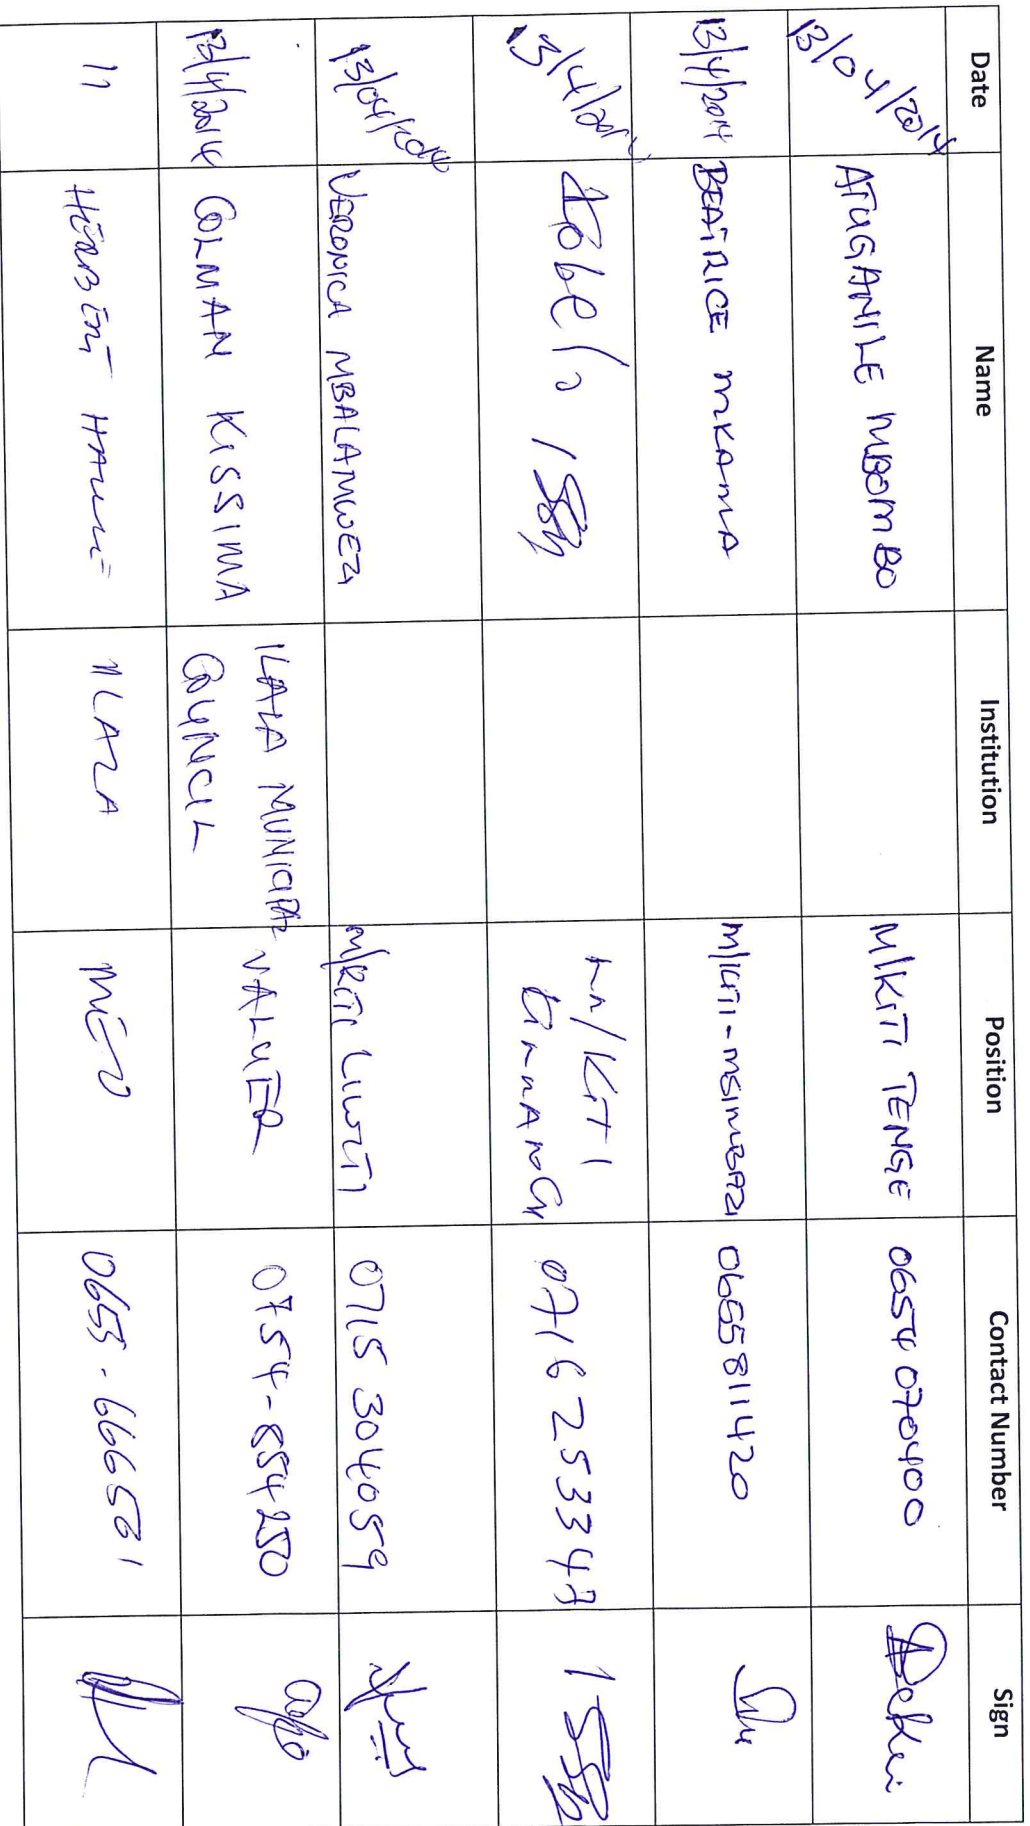 Date Name Institution Position Contact Number Sign
13/04/2014 ATUGANILE MBOMBO M/KITI TENGE 0654 070400
13/4/2014 BEATRICE MKAMA M/KITI-MSIMBAZI 0655811420
13/4/2014 M/KITI 0716253347
13/04/2014 VERONICA MBALAMWEZI M/KITI LIWITI 0715 304059
13/4/2014 COLMAN KISSIMA ILALA MUNICIPAL VALUER 0754-854250
COUNCIL
11 HERBERT 0653-666581